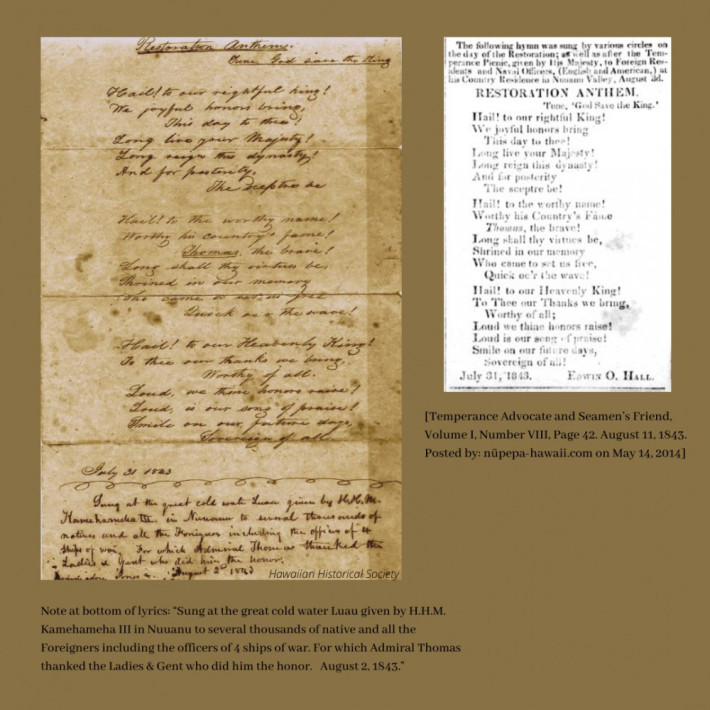 Restoration Anthem.
Tune God save the King
Hail! to our rightful king!
We joyful honors bring,
This day to thee!
Long live your Majesty!
Long reign this dynasty!
And for posterity,
The Sceptre be
Hail! to the worthy name!
Worthy his country's fame!
Thomas, the brave!
Long shall thy virtues be,
Shrined in our memory
who came to set us free
Quick o'er the wave!
Hail! to our Heavenly King!
To thee our thanks we bring,
Worthy of all.
Loud, we thine honors raise!
Loud, is our song of praise!
Smile on our future days,
Sovereign of all
July 31 1843
Sung at the great cold water Luau given by H.H.M.
Kamehameha III, in Nuuanu to several thousands of
natives and all the Foreigners including the officers of 4
ships of war. For which Admiral Thomas thanked the
Ladies & Gent who did him the honor.
August 2d 1843
Hawaiian Historical Society
The following hymn was sung by various circles on
the day of the Restoration; as well as after the Tem-
perance Picnic, given by His Majesty, to Foreign Res-
idents and Naval Officers, (English and American,) at
his Country Residence in Nuuanu Valley, August 3d.
RESTORATION ANTHEM.
Tune, 'God Save the King.'
Hail! to our rightful King!
We joyful honors bring
This day to thee!
Long live your Majesty!
Long reign this dynasty!
And for posterity
The sceptre be!
Hail! to the worthy name!
Worthy his Country's Fame
Thomas, the brave!
Long shall thy virtues be,
Shrined in our memory
Who came to set us free,
Quick oe'r the wave!
Hail! to our Heavenly King!
To Thee our Thanks we bring,
Worthy of all;
Loud we thine honors raise!
Loud is our song of praise!
Smile on our future days,
Sovereign of all!
July 31, 1843. EDWIN O. HALL.
[Temperance Advocate and Seamen's Friend,
Volume I, Number VIII, Page 42. August 11, 1843.
Posted by: nūpepa-hawaii.com on May 14, 2014]
Note at bottom of lyrics: "Sung at the great cold water Luau given by H.H.M.
Kamehameha III in Nuuanu to several thousands of native and all the
Foreigners including the officers of 4 ships of war. For which Admiral Thomas
thanked the Ladies & Gent who did him the honor. August 2, 1843."